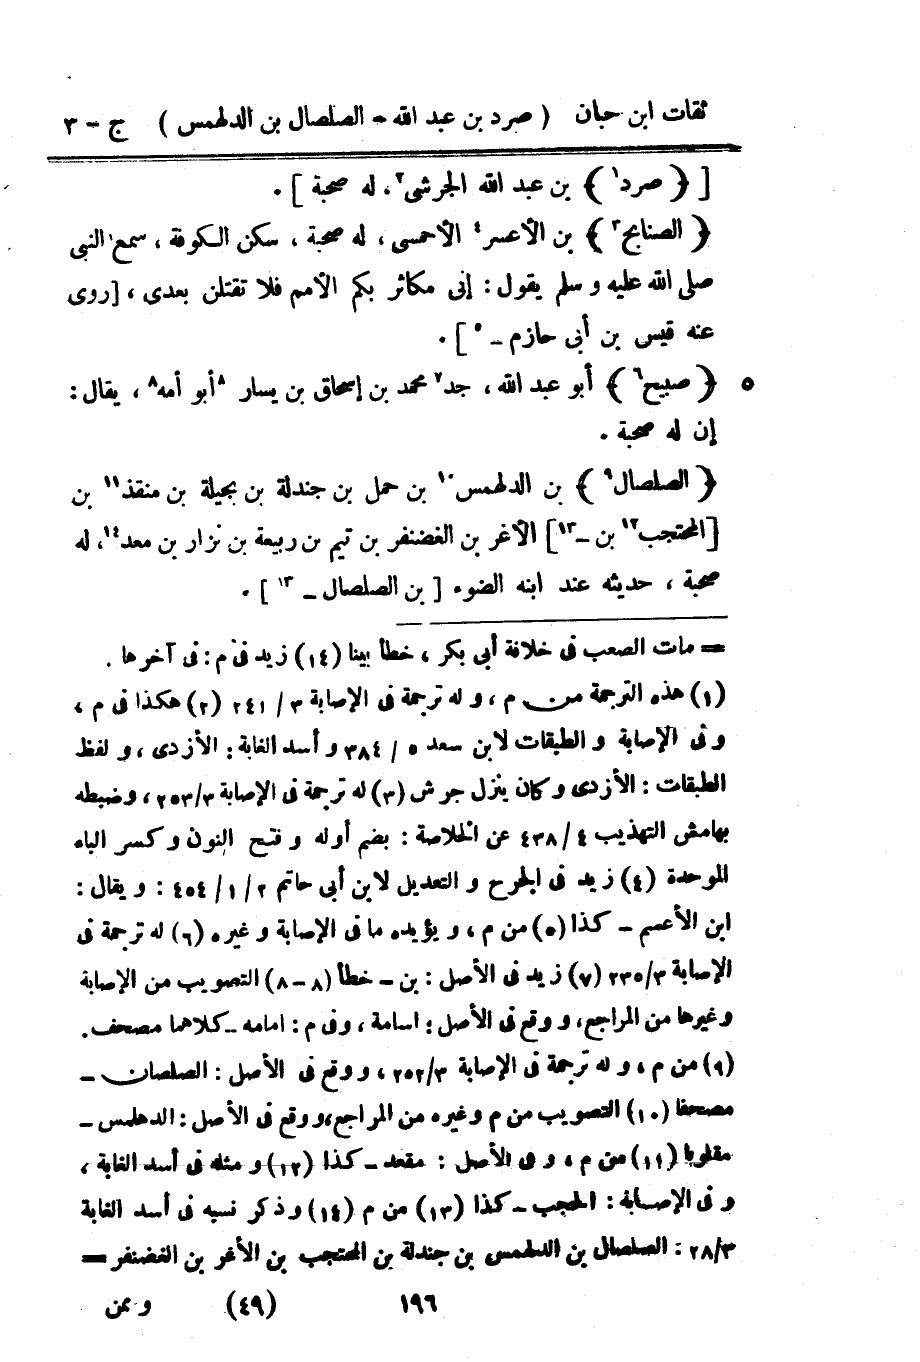 ثقات ابن حبان ( صرد بن عبد الله - الصلصال بن الدلهمس ) ج - ٣
[ ﴿ صرد١ ﴾ بن عبد الله الجرشى٢، له صحبة ] .
﴿ الصنابح٣ ﴾ بن الأعسر٤ الأحمسى، له صحبة ، سكن الكوفة ، سمع النبى
صلى الله عليه و سلم يقول : إنى مكاثر بكم الأمم فلا تقتلن بعدى ، [روى
عنه قيس بن أبى حازم - ٥ ] .
٥ ﴿ صبيح٦ ﴾ أبو عبد الله ، جد٧ محمد بن إسحاق بن يسار ٨أبو أمه٨ ، يقال :
إن له صحبة .
﴿ الصلصال٩ ﴾ بن الدلهمس١٠ بن حمل بن جندلة بن بجيلة بن منقذ١١ بن
[المحتجب١٢ بن - ١٣] الأغر بن الغضنفر بن تيم بن ربيعة بن نزار بن معد١٤، له
صحبة ، حديثه عند ابنه الضوء [ بن الصلصال - ١٣ ] .
= مات الصعب فى خلافة أبى بكر ، خطأ بينا (١٤) زيد فى م : فى آخرها .
(١) هذه الترجمة من م ، و له ترجمة فى الإصابة ٣ / ٢٤١ (٢) هكذا فى م ،
و فى الإصابة و الطبقات لابن سعد ٥ / ٣٨٤ و أسد الغابة : الأزدى ، و لفظ
الطبقات : الأزدى و كان ينزل جرش (٣) له ترجمة فى الإصابة ٢٥٣/٣ ، و ضبطه
بهامش التهذيب ٤ / ٤٣٨ عن الخلاصة : بضم أوله و فتح النون و كسر الباء
الموحدة (٤) زيد فى الجرح و التعديل لابن أبى حاتم ٢ / ١ / ٤٥٤ : و يقال :
ابن الأعسم - كذا (٥) من م ، و يؤيده ما فى الإصابة و غيره (٦) له ترجمة فى
الإصابة ٢٣٥/٣ (٧) زيد فى الأصل : بن - خطأ (٨ - ٨) التصويب من الإصابة
و غيرها من المراجع، و وقع فى الأصل : اسامة ، و فى م : امامه - كلاهما مصحف .
(٩) من م ، و له ترجمة فى الإصابة ٢٥٢/٣ ، و وقع فى الأصل : الصلصان -
مصحفا (١٠) التصويب من م و غيره من المراجع، و وقع فى الأصل : الدهلمس -
مقلوبا (١١) من م ، و فى الأصل : مقعد - كذا (١٢) و مثله فى أسد الغابة ،
و فى الإصابة : المحجب - كذا (١٣) من م (١٤) و ذكر نسبه فى أسد الغابة
٢٨/٣ : الصلصال بن الدلهمس بن جندلة بن المحتجب بن الأغر بن الغضنفر =
١٩٦ (٤٩) و ممن